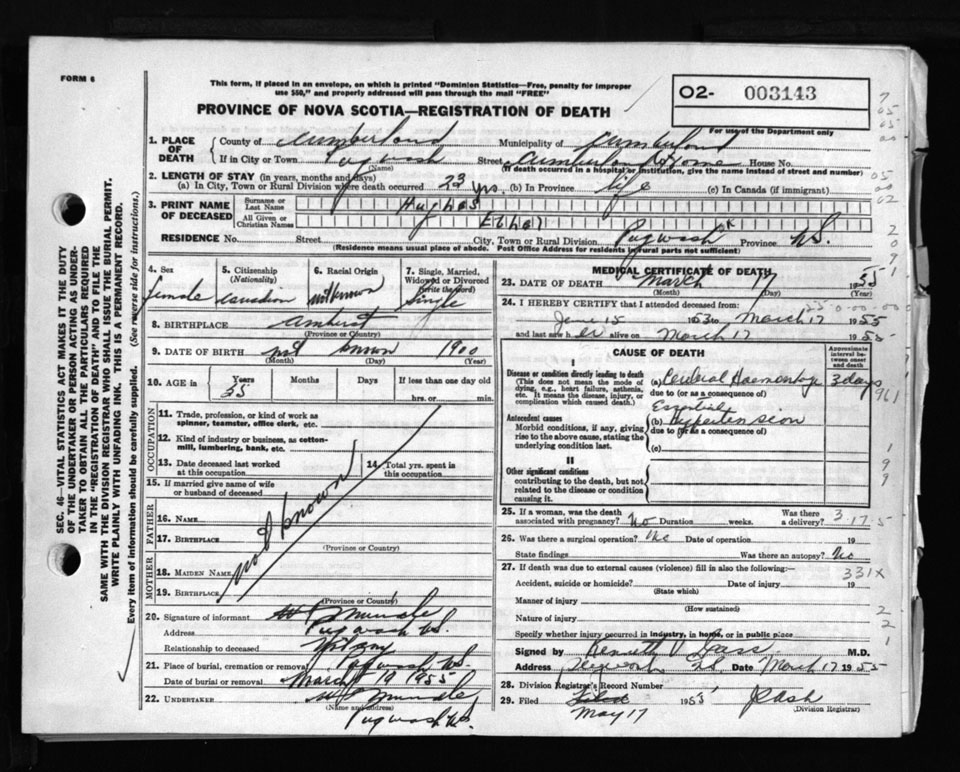 FORM 6
This form, if placed in an envelope, on which is printed "Dominion Statistics—Free, penalty for improper
use $50," and properly addressed will pass through the mail "FREE"
PROVINCE OF NOVA SCOTIA—REGISTRATION OF DEATH
O2- 003143
For use of the Department only
1. PLACE OF DEATH
County of Cumberland Municipality of Cumberland
If in City or Town Pugwash Street Cumberland Home House No.
(Name) (If death occurred in a hospital or institution, give the name instead of street and number)
2. LENGTH OF STAY (in years, months and days)
(a) In City, Town or Rural Division where death occurred 23 yrs. (b) In Province life (c) In Canada (if immigrant)
3. PRINT NAME OF DECEASED
Surname or Last Name Hughes
All Given or Christian Names Ethel
RESIDENCE No. Street City, Town or Rural Division Pugwash OK Province N.S.
(Residence means usual place of abode. Post Office Address for residents in rural parts not sufficient)
4. Sex female
5. Citizenship (Nationality) Canadian
6. Racial Origin not known
7. Single, Married, Widowed or Divorced (Write the word) Single
8. BIRTHPLACE Amherst
(Province or Country)
9. DATE OF BIRTH not known 1900
(Month) (Day) (Year)
10. AGE in Years 55 Months Days If less than one day old
hrs. or min.
OCCUPATION
11. Trade, profession, or kind of work as spinner, teamster, office clerk, etc.
12. Kind of industry or business, as cotton-mill, lumbering, bank, etc.
13. Date deceased last worked at this occupation
14. Total yrs. spent in this occupation
15. If married give name of wife or husband of deceased
FATHER
16. NAME
17. BIRTHPLACE
(Province or Country)
MOTHER
18. MAIDEN NAME
19. BIRTHPLACE
(Province or Country)
not known
20. Signature of informant
Address Pugwash N.S.
Relationship to deceased
21. Place of burial, cremation or removal Pugwash N.S.
Date of burial or removal March 19 1955
22. UNDERTAKER
(Name and Address)
Pugwash N.S.
MEDICAL CERTIFICATE OF DEATH
23. DATE OF DEATH March 17 1955
(Month) (Day) (Year)
24. I HEREBY CERTIFY that I attended deceased from:
June 15 1953 to March 17 1955
and last saw her alive on March 17 1955
CAUSE OF DEATH
Approximate interval between onset and death
I
Disease or condition directly leading to death
(This does not mean the mode of dying, e.g., heart failure, asthenia, etc. It means the disease, injury, or complication which caused death.)
(a) Cerebral Haemorrhage 3 days
due to (or as a consequence of)
Antecedent causes
Morbid conditions, if any, giving rise to the above cause, stating the underlying condition last.
(b) Essential Hypertension
due to (or as a consequence of)
(c)
II
Other significant conditions
contributing to the death, but not related to the disease or condition causing it.
25. If a woman, was the death associated with pregnancy? No Duration weeks. Was there a delivery?
3 17 5
26. Was there a surgical operation? No Date of operation 19
State findings Was there an autopsy? No
27. If death was due to external causes (violence) fill in also the following:—
331X
Accident, suicide or homicide? Date of injury 19
(State which)
Manner of injury
(How sustained)
Nature of injury
Specify whether injury occurred in industry, in home, or in public place
Signed by Kenneth V. M.D.
Address N.S. Date March 17 1955
28. Division Registrar's Record Number
29. Filed May 17 1955
(Division Registrar)
SEC. 46—VITAL STATISTICS ACT MAKES IT THE DUTY
OF THE UNDERTAKER OR PERSON ACTING AS UNDER-
TAKER TO OBTAIN ALL THE PARTICULARS REQUIRED
IN THE "REGISTRATION OF DEATH" AND TO FILE THE
SAME WITH THE DIVISION REGISTRAR WHO SHALL ISSUE THE BURIAL PERMIT.
WRITE PLAINLY WITH UNFADING INK. THIS IS A PERMANENT RECORD.
Every item of information should be carefully supplied. (See reverse side for instructions.)